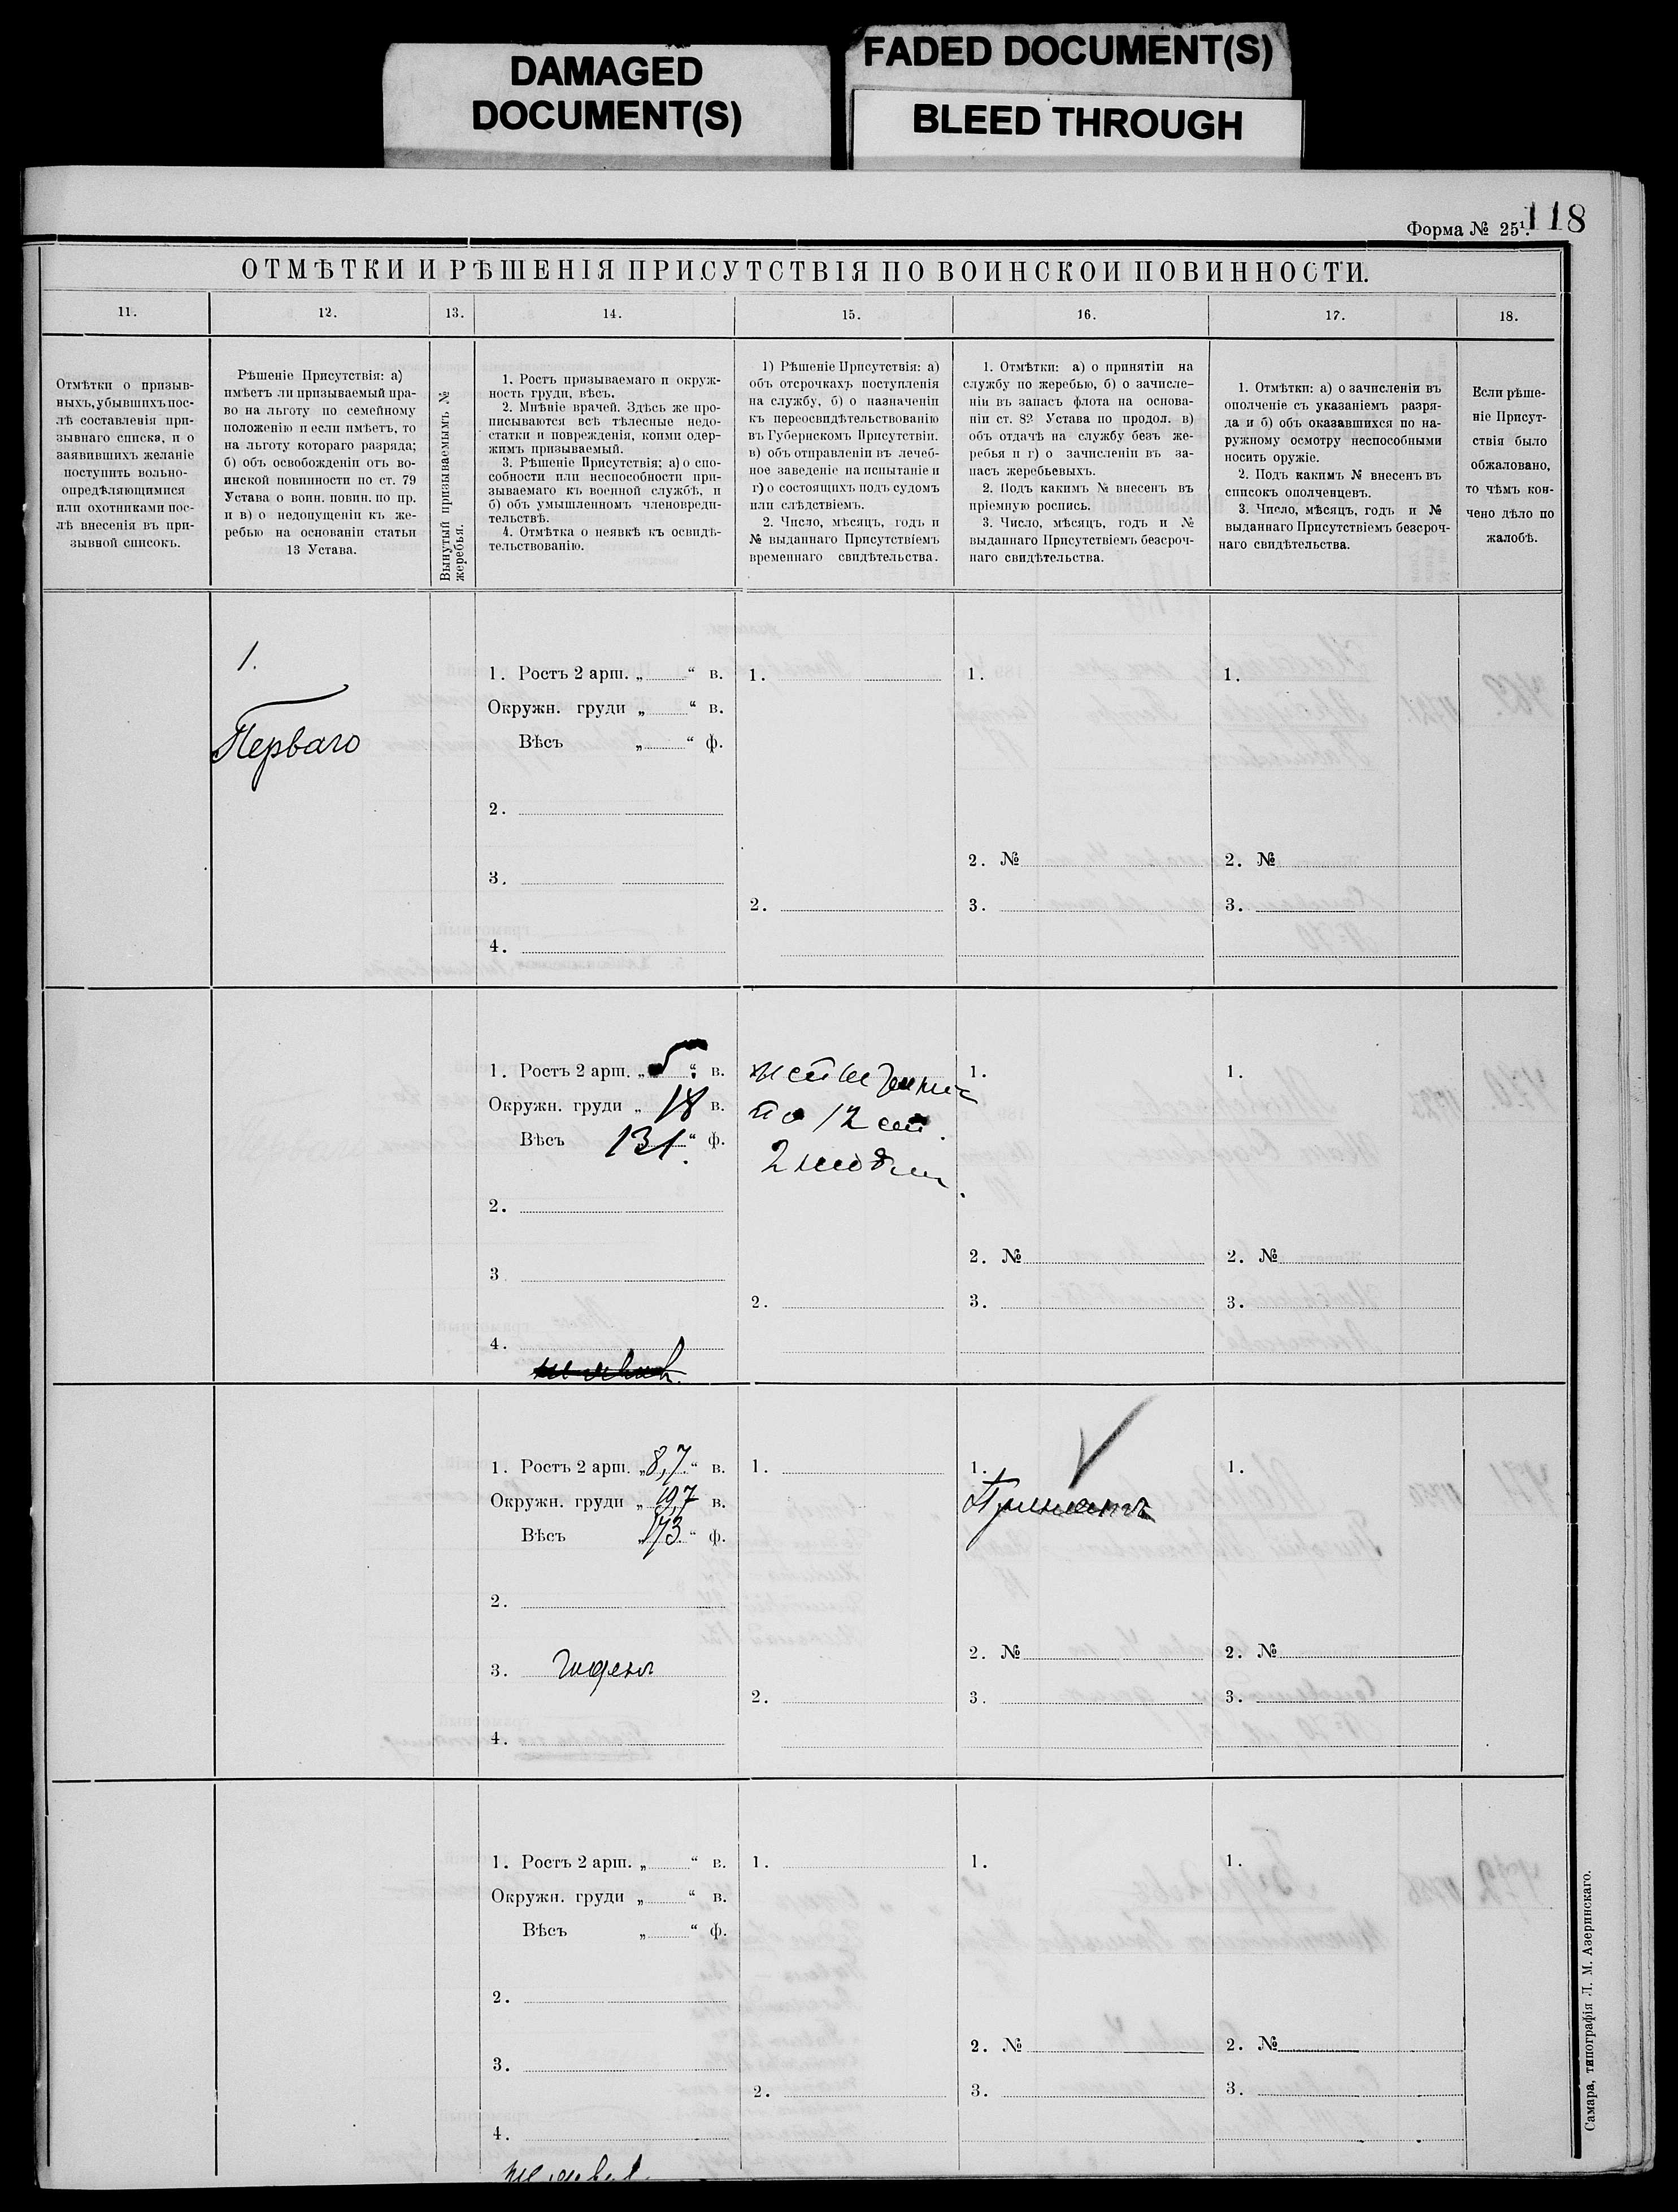 DAMAGED
DOCUMENT(S)
FADED DOCUMENT(S)
BLEED THROUGH
118
Форма № 25¹.
ОТМѢТКИ И РѢШЕНІЯ ПРИСУТСТВІЯ ПО ВОИНСКОИ ПОВИННОСТИ.
11.
12.
13.
14.
15.
16.
17.
18.
Отмѣтки о призыв-
ныхъ, убывшихъ пос-
лѣ составленія при-
зывнаго списка, и о
заявившихъ желаніе
поступить вольно-
опредѣляющимися
или охотниками пос-
лѣ внесенія въ при-
зывной списокъ.
Рѣшеніе Присутствія: а)
имѣетъ ли призываемый пра-
во на льготу по семейному
положенію и если имѣетъ, то
на льготу котораго разряда;
б) объ освобожденіи отъ во-
инской повинности по ст. 79
Устава о воин. повин. по пр.
и в) о недопущеніи къ же-
ребью на основаніи статьи
13 Устава.
Вынутый призываемымъ №
жеребья.
1. Ростъ призываемаго и окруж-
ность груди, вѣсъ.
2. Мнѣніе врачей. Здѣсь же про-
писываются всѣ тѣлесные недо-
статки и поврежденія, коими одер-
жимъ призываемый.
3. Рѣшеніе Присутствія; а) о спо-
собности или неспособности при-
зываемаго къ военной службѣ, и
б) объ умышленномъ членовреди-
тельствѣ.
4. Отмѣтка о неявкѣ къ освидѣ-
тельствованію.
1) Рѣшеніе Присутствія: а)
объ отсрочкахъ поступленія
на службу, б) о назначеніи
къ переосвидѣтельствованію
въ Губернскомъ Присутствіи.
в) объ отправленіи въ лечеб-
ное заведеніе на испытаніе и
г) о состоящихъ подъ судомъ
или слѣдствіемъ.
2. Число, мѣсяцъ, годъ и
№ выданнаго Присутствіемъ
временнаго свидѣтельства.
1. Отмѣтки: а) о принятіи на
службу по жеребью, б) о зачисле-
ніи въ запасъ флота на основа-
ніи ст. 82 Устава по продол. в)
объ отдачѣ на службу безъ же-
ребья и г) о зачисленіи въ за-
пасъ жеребьевыхъ.
2. Подъ какимъ № внесенъ въ
пріемную роспись.
3. Число, мѣсяцъ, годъ и №
выданнаго Присутствіемъ безсроч-
наго свидѣтельства.
1. Отмѣтки: а) о зачисленіи въ
ополченіе съ указаніемъ разря-
да и б) объ оказавшихся по на-
ружному осмотру неспособными
носить оружіе.
2. Подъ какимъ № внесенъ въ
списокъ ополченцевъ.
3. Число, мѣсяцъ, годъ и №
выданнаго Присутствіемъ безсроч-
наго свидѣтельства.
Если рѣше-
ніе Присут-
ствія было
обжаловано,
то чѣмъ кон-
чено дѣло по
жалобѣ.
1.
Перваго
1. Ростъ 2 арш. „ “ в.
Окружн. груди „ “ в.
Вѣсъ „ “ ф.
2.
3.
4.
1.
2.
1.
2. №
3.
1.
2. №
3.
1. Ростъ 2 арш. „ 5 “ в.
Окружн. груди „ 18 в.
Вѣсъ 131 “ ф.
2.
3
4.
по 12 ст.
2.
1.
2. №
3.
1.
2. №
3.
1. Ростъ 2 арш. „ 8,7 “ в.
Окружн. груди „ 19,7 в.
Вѣсъ „ 173 “ ф.
2.
3. Годенъ
4.
1.
2.
1.
Принятъ
2. №
3.
1.
2. №
3.
1. Ростъ 2 арш. „ “ в.
Окружн. груди „ “ в.
Вѣсъ „ “ ф.
2.
3.
4.
1.
2.
1.
2. №
3.
1.
2. №
3.
Самара, типографія Л. М. Азеринскаго.